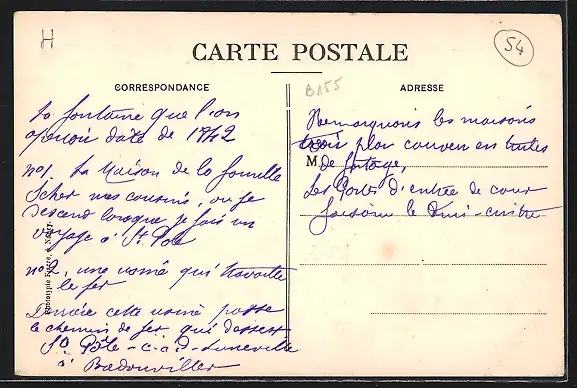 H
54
CARTE POSTALE
B155
CORRESPONDANCE
ADRESSE
La fontaine que l'on
aperçoit date de 1742
no 1. La Maison de la famille
Scher mes cousins, ou je
descend lorsque je fais un
voyage à St Pole
no 2, une usine qui travaille
le fer
Derrière cette usine passe
le chemin de fer qui dessert
St Pôle - c-a-d - Luneville
à Badonviller
Remarquons les maisons
plus couvertes en tuiles
M
de fortage,
Les Portes d'entrée de cour
Phototypie Nancy